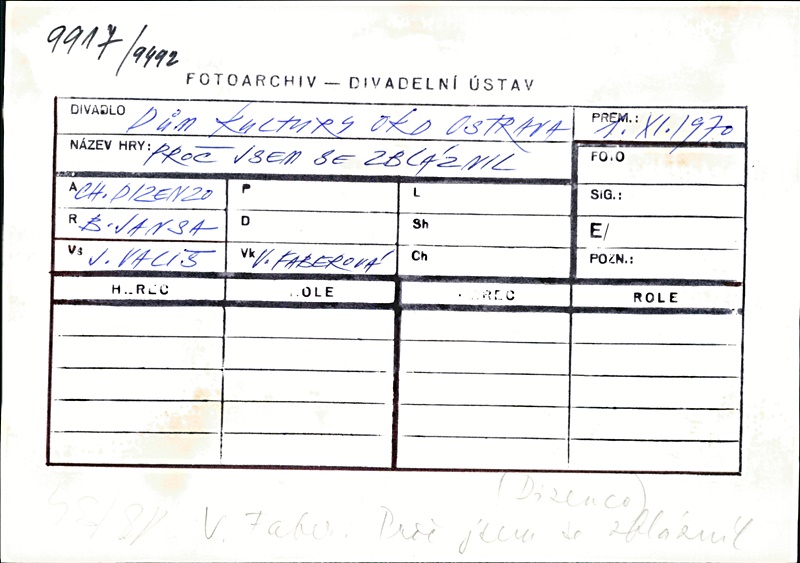 9917/9492
FOTOARCHIV — DIVADELNÍ ÚSTAV
DIVADLO DŮM KULTURY OKD OSTRAVA PREM.: 1. XI. 1970
NÁZEV HRY: PROČ JSEM SE ZBLÁZNIL FOTO
A CH. DIZENZO P L SIG.:
R B. JANSA D Sh E/
Vs J. VALIŠ Vk V. FABEROVÁ Ch POZN.:
HEREC ROLE HEREC ROLE
(Dizenco)
V. Faber: Proč jsem se zbláznil